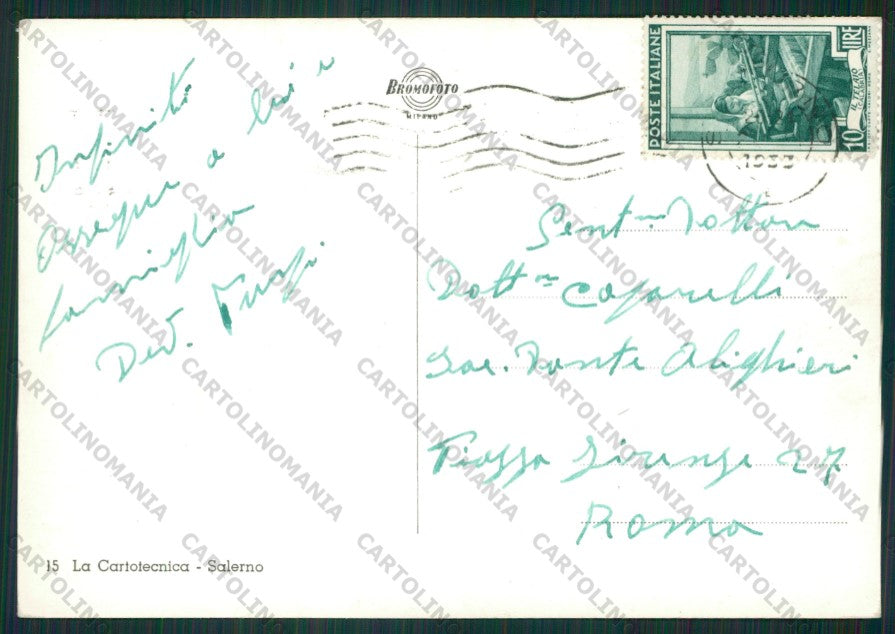 Infiniti
ossequi a lui e
famiglia
Dev. Turpi.
BROMOFOTO
MILANO
POSTE ITALIANE
LIRE
10
IL TELAIO
Gent.mo Dottore
Dott.re Caporelli
Soc. Dante Alighieri
Piazza Firenze 27
Roma
15 La Cartotecnica - Salerno
CARTOLINOMANIA